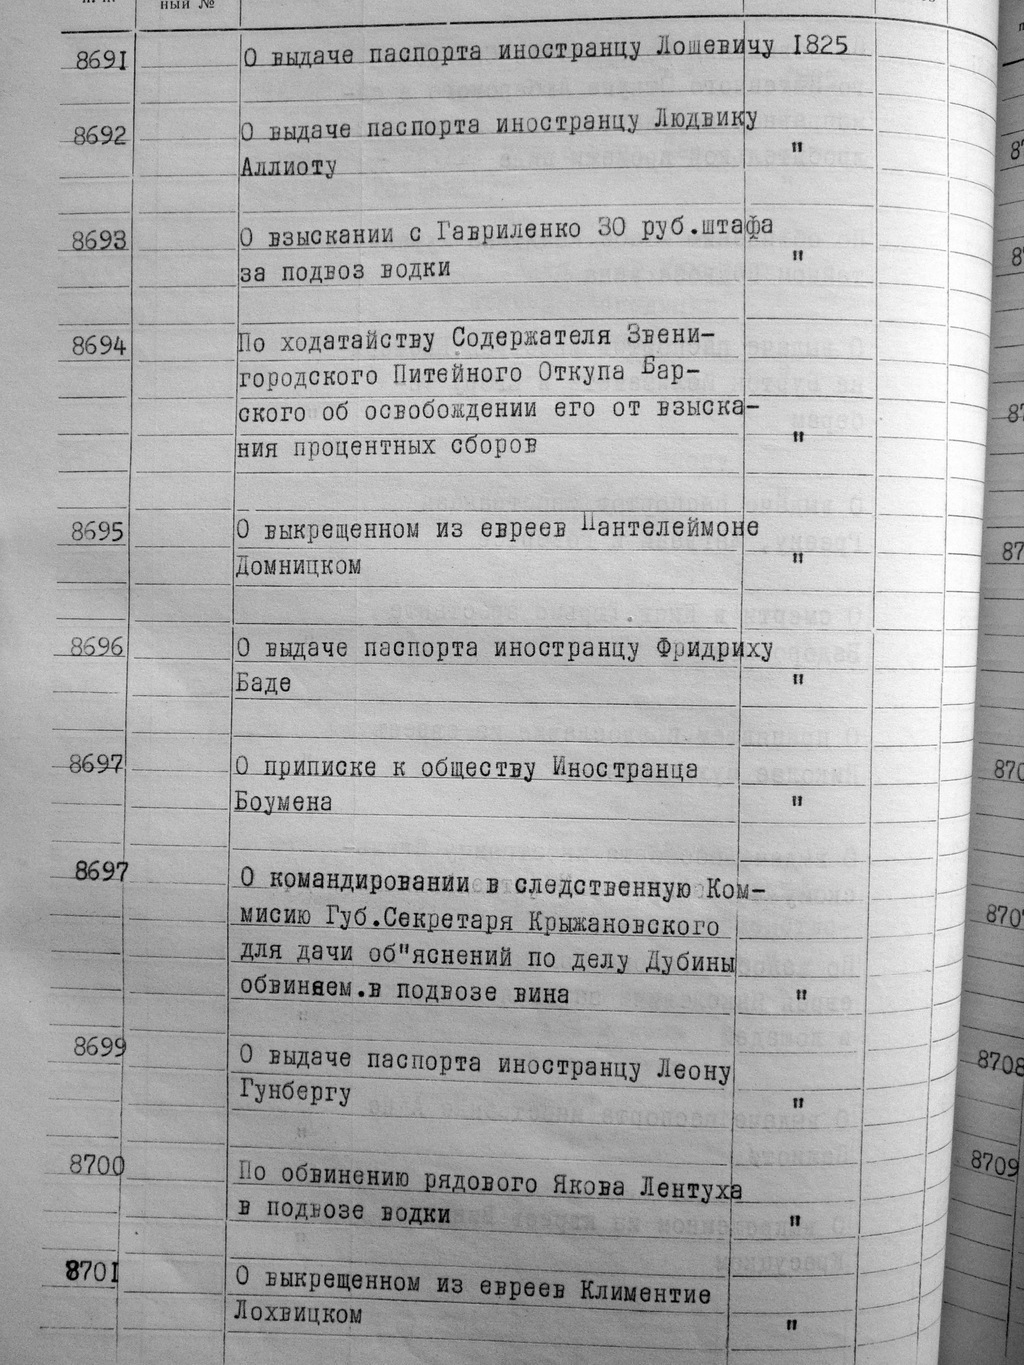 ный №
8691 О выдаче паспорта иностранцу Лошевичу 1825
8692 О выдаче паспорта иностранцу Людвику
Аллиоту "
8693 О взыскании с Гавриленко 30 руб.штафа
за подвоз водки "
8694 По ходатайству Содержателя Звени-
городского Питейного Откупа Бар-
ского об освобождении его от взыска-
ния процентных сборов "
8695 О выкрещенном из евреев Пантелеймоне
Домницком "
8696 О выдаче паспорта иностранцу Фридриху
Баде "
8697 О приписке к обществу Иностранца
Боумена "
8697 О командировании в следственную Ком-
мисию Губ.Секретаря Крыжановского
для дачи об"яснений по делу Дубины
обвиняем.в подвозе вина "
8699 О выдаче паспорта иностранцу Леону
Гунбергу "
8700 По обвинению рядового Якова Лентуха
в подвозе водки "
8701 О выкрещенном из евреев Климентие
Лохвицком "
8708
8709